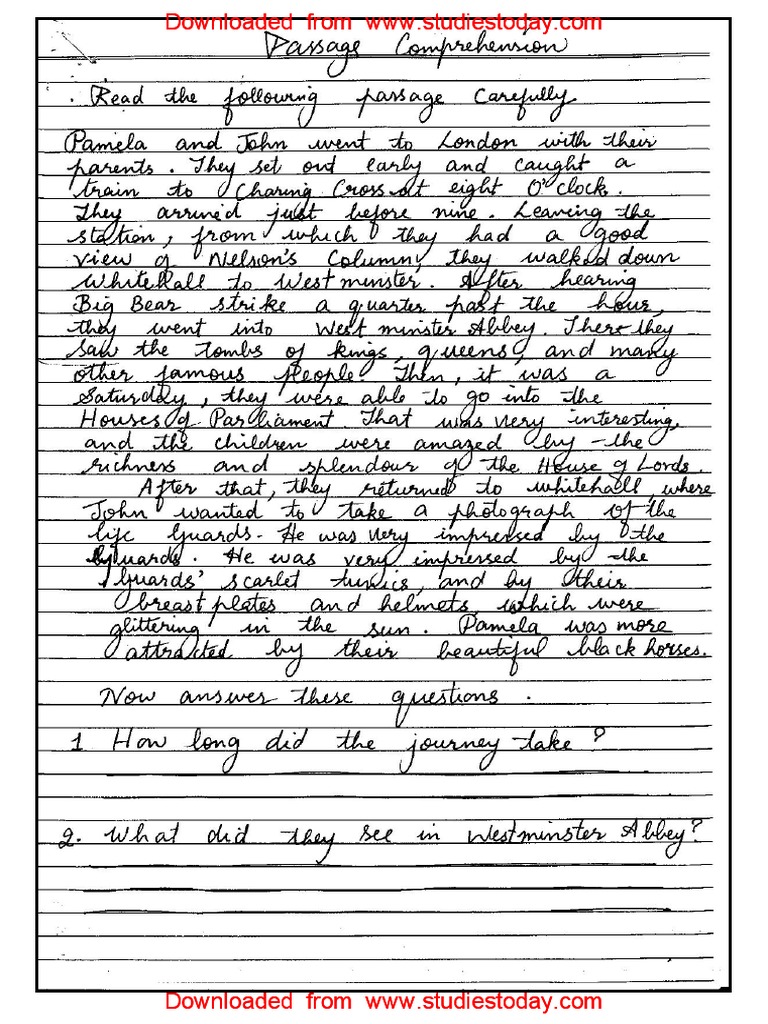 Downloaded from www.studiestoday.com
Passage Comprehension
. Read the following passage Carefully
Pamela and John went to London with their
parents. They set out early and caught a
train to Charing Cross at eight O'clock.
They arrived just before nine. Leaving the
station, from which they had a good
view of Nelson's Column, they walked down
Whitehall to Westminster. After hearing
Big Bear strike a quarter past the hour,
they went into Westminster Abbey. There they
saw the tombs of kings, queens, and many
other famous people. Then, it was a
Saturday, they were able to go into the
Houses of Parliament. That was very interesting,
and the children were amazed by the
richness and splendour of the House of Lords.
After that, they returned to whitehall, where
John wanted to take a photograph of the
life Guards. He was very impressed by the
Guards. He was very impressed by the
Guards' scarlet tunics, and by their
breast plates and helmets, which were
glittering in the sun. Pamela was more
attracted by their beautiful black horses.
Now answer these questions.
1 How long did the journey take?
2. What did they see in Westminster Abbey?
Downloaded from www.studiestoday.com